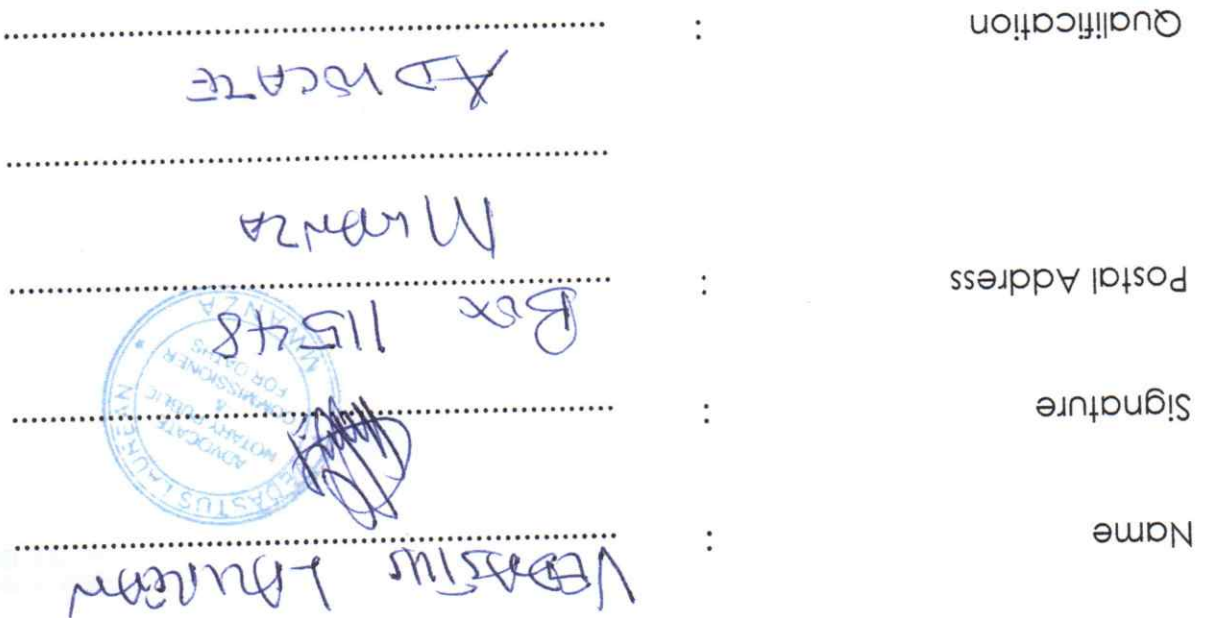 Name : VEDASTUS LAUREAN
Signature :
Postal Address : Box 11548
MWANZA
Qualification : ADVOCATE
VEDASTUS LAUREAN
ADVOCATE
NOTARY PUBLIC
&
COMMISSIONER
FOR OATHS
* MWANZA *